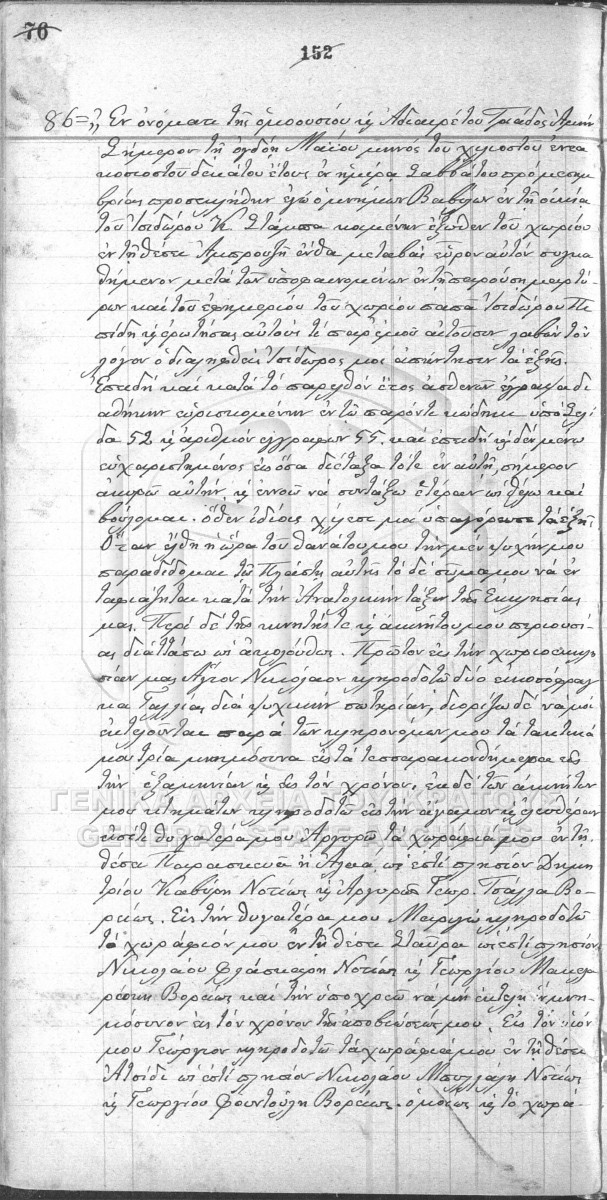 76
152
86=,, Ἐν ὀνόματι τῆς ὁμοουσίου κ̀ Ἀδιαιρέτου Τριάδος Ἀμήν
Σήμερον τῇ ὀγδόῃ Μαΐου μηνὸς τοῦ χιλιοστοῦ ἐνεα
κοσιοστοῦ δεκάτου ἔτους ἐν ἡμέρᾳ Σαββάτου πρὸ μεσημ
βρίας προσεκλήθην ἐγὼ ὁ μνήμων Βαβύλων ἐν τῇ οἰκίᾳ
τοῦ Ἰσιδώρου Κ. Στάμπα κειμένην ἔξωθεν τοῦ χωρίου
ἐν τῇ θέσει ἔνθα μεταβὰς εὗρον αὐτὸν συγκα
θήμενον μετὰ τῶν ὑποφαινομένων ἐν τῇ παρούσῃ μαρτύ
ρων καὶ τοῦ ἐφημερίου τοῦ χωρίου παπᾶ Ἰσιδώρου Πι
πίδη κ̀ ἐρωτήσας αὐτοὺς τί παρ' ἐμοῦ αἰτοῦσιν λαβὼν τὸν
λόγον ὁ διαληφθεὶς Ἰσίδωρος μοὶ ἀπήντησεν τὰ ἑξῆς.
Ἐπειδὴ καὶ κατὰ τὸ παρελθὸν ἔτος ἀσθενῶν ἔγραψα δι
αθήκην εὑρισκομένην ἐν τῷ παρόντι κώδηκι ὑπὸ Σελί
δα 52 κ̀ ἀριθμὸν ἐγγράφου 55. καὶ ἐπειδὴ κ̀ δὲ μένω
εὐχαριστημένος εἰς ὅσα διέταξα τότε ἐν αὐτῇ, σήμερον
ἀκυρῶ αὐτήν κ̀ ἐννοῶ νὰ συντάξω ἑτέραν ὡς θέλω καὶ
βούλομαι. ὅθεν ἰδίοις χείλεσί μοι ὑπαγόρευσε τὰ ἑξῆς
Ὅταν ἔλθῃ ἡ ὥρα τοῦ θανάτου μου τὴν μὲν ψυχήν μου
παραδίδομαι τῷ Πλάστῃ αὐτῆς τὸ δὲ σῶμα μου νὰ ἐν
ταφιάζηται κατὰ τὴν Ἀνατολικὴν τάξιν τῆς Ἐκκλησίας
μας. Περὶ δὲ τῆς κινητῆς τε κ̀ ἀκινήτου μου περιουσί
ας διατάσω ὡς ἀκολούθως. Πρῶτον εἰς τὴν χωρίου ἐκκλη
σίαν μας Ἅγιον Νικόλαον κληροδοτῶ δύο εἰκοσόφραγ
κα Γαλλίας διὰ ψυχικὴν σωτηρίαν, διορίζω δὲ νὰ μοὶ
ἐκτελοῦνται παρὰ τῶν κληρονόμων μου τὰ τακτικά
μου τρία μνημόσυνα εἰς τὰ τεσσαρακονθήμερα εἰς
τὴν ἑξαμηνίαν κ̀ εἰς τὸν χρόνον, ἐκ δὲ τῶν ἀκινήτων
μου κτημάτων κληροδοτῶ εἰς τὴν ἄγαμον κ̀ ἐλευθέραν
εἰσέτι θυγατέρα μου Ἀργυρῶ τὰ χωράφια μου ἐν τῇ
θέσει Παρασκευὰ ἢ ὡς ἐστὶ πλησίον Δημη
τρίου Καβύρη Νοτίως κ̀ Ἀργυροῦς Γεωρ. Τσάλλα Βο-
ρείως. Εἰς τὴν θυγατέρα μου Μαριγὼ κληροδοτῶ
τὸ χωράφιόν μου ἐν τῇ θέσει Σταυρὰ ὡς ἐστὶ πλησίον
Νικολάου Φλάσκαρη Νοτίως κ̀ Γεωργίου Μακελα
ράκη Βορείως καὶ τὴν ὑποχρεῶ νὰ μοὶ ἐκτελῇ ἓν μνη
μόσυνον εἰς τὸν χρόνον τῆς ἀποβιώσεώς μου. Εἰς τὸν υἱόν
μου Γεώργιον κληροδοτῶ τὰ χωράφια μου ἐν τῇ θέσει
Ἀτσίδι ὡς ἐστὶ πλησίον Νικολάου Νοτίως
κ̀ Γεωργίου Φουντούλη Βορείως. ὁμοίως κ̀ τὸ χωρά-
ΓΕΝΙΚΑ ΑΡΧΕΙΑ ΤΟΥ ΚΡΑΤΟΥΣ
GENERAL STATE ARCHIVES